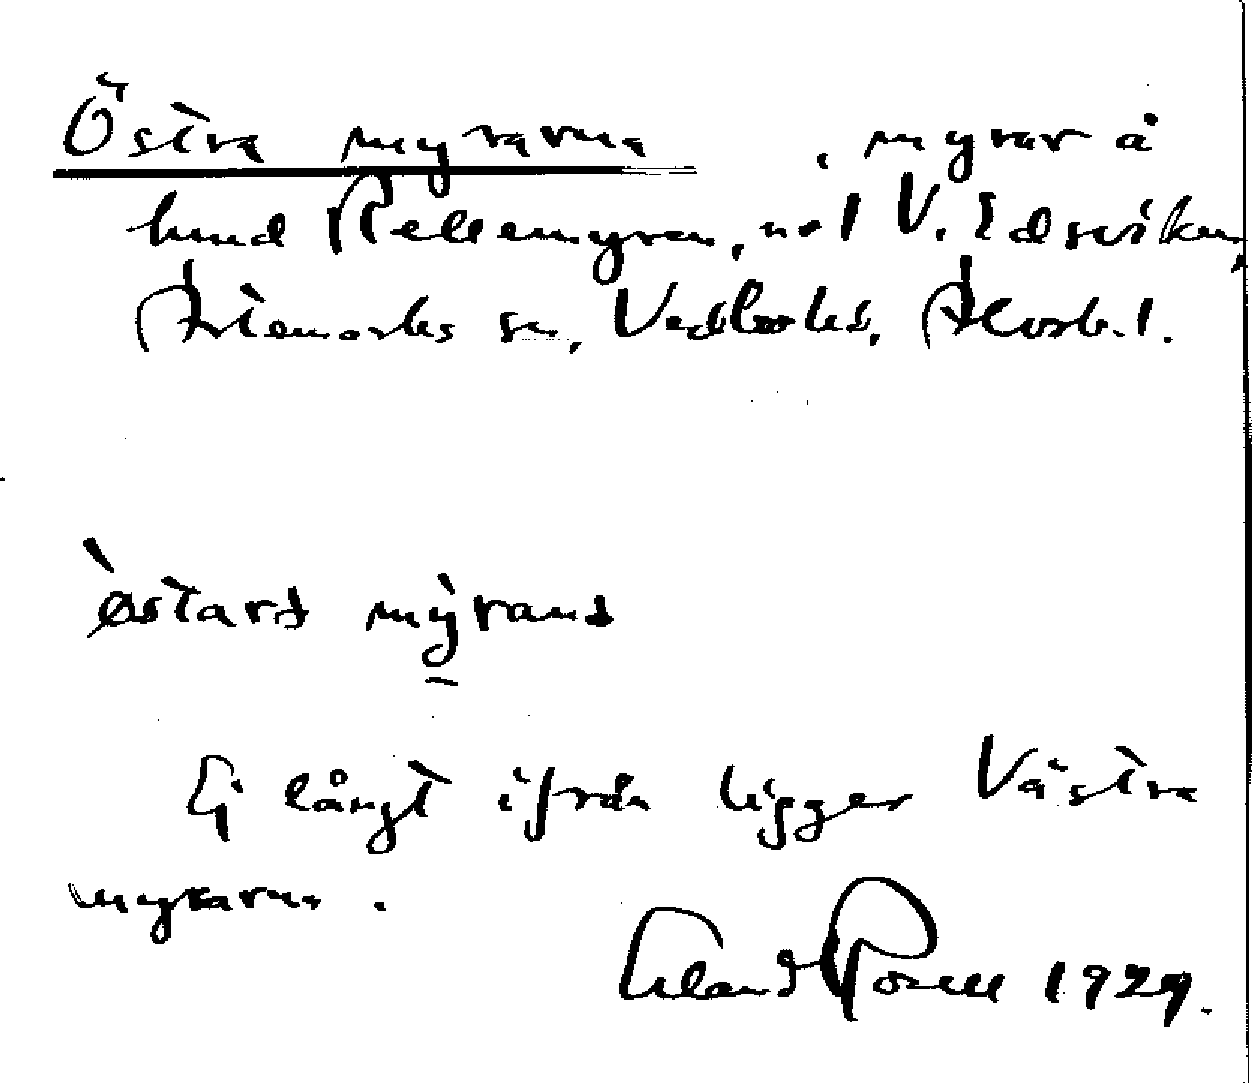 Östra myrarna , myrar å
hmd Rellemyren, nv l V. Edsviken,
Årtemarks sn, Vedbo hd, Älvsb. l.
ὸstarə mỳranə
Ej långt ifrån ligger Västra
myrarna.
Erland Rosell 1929.